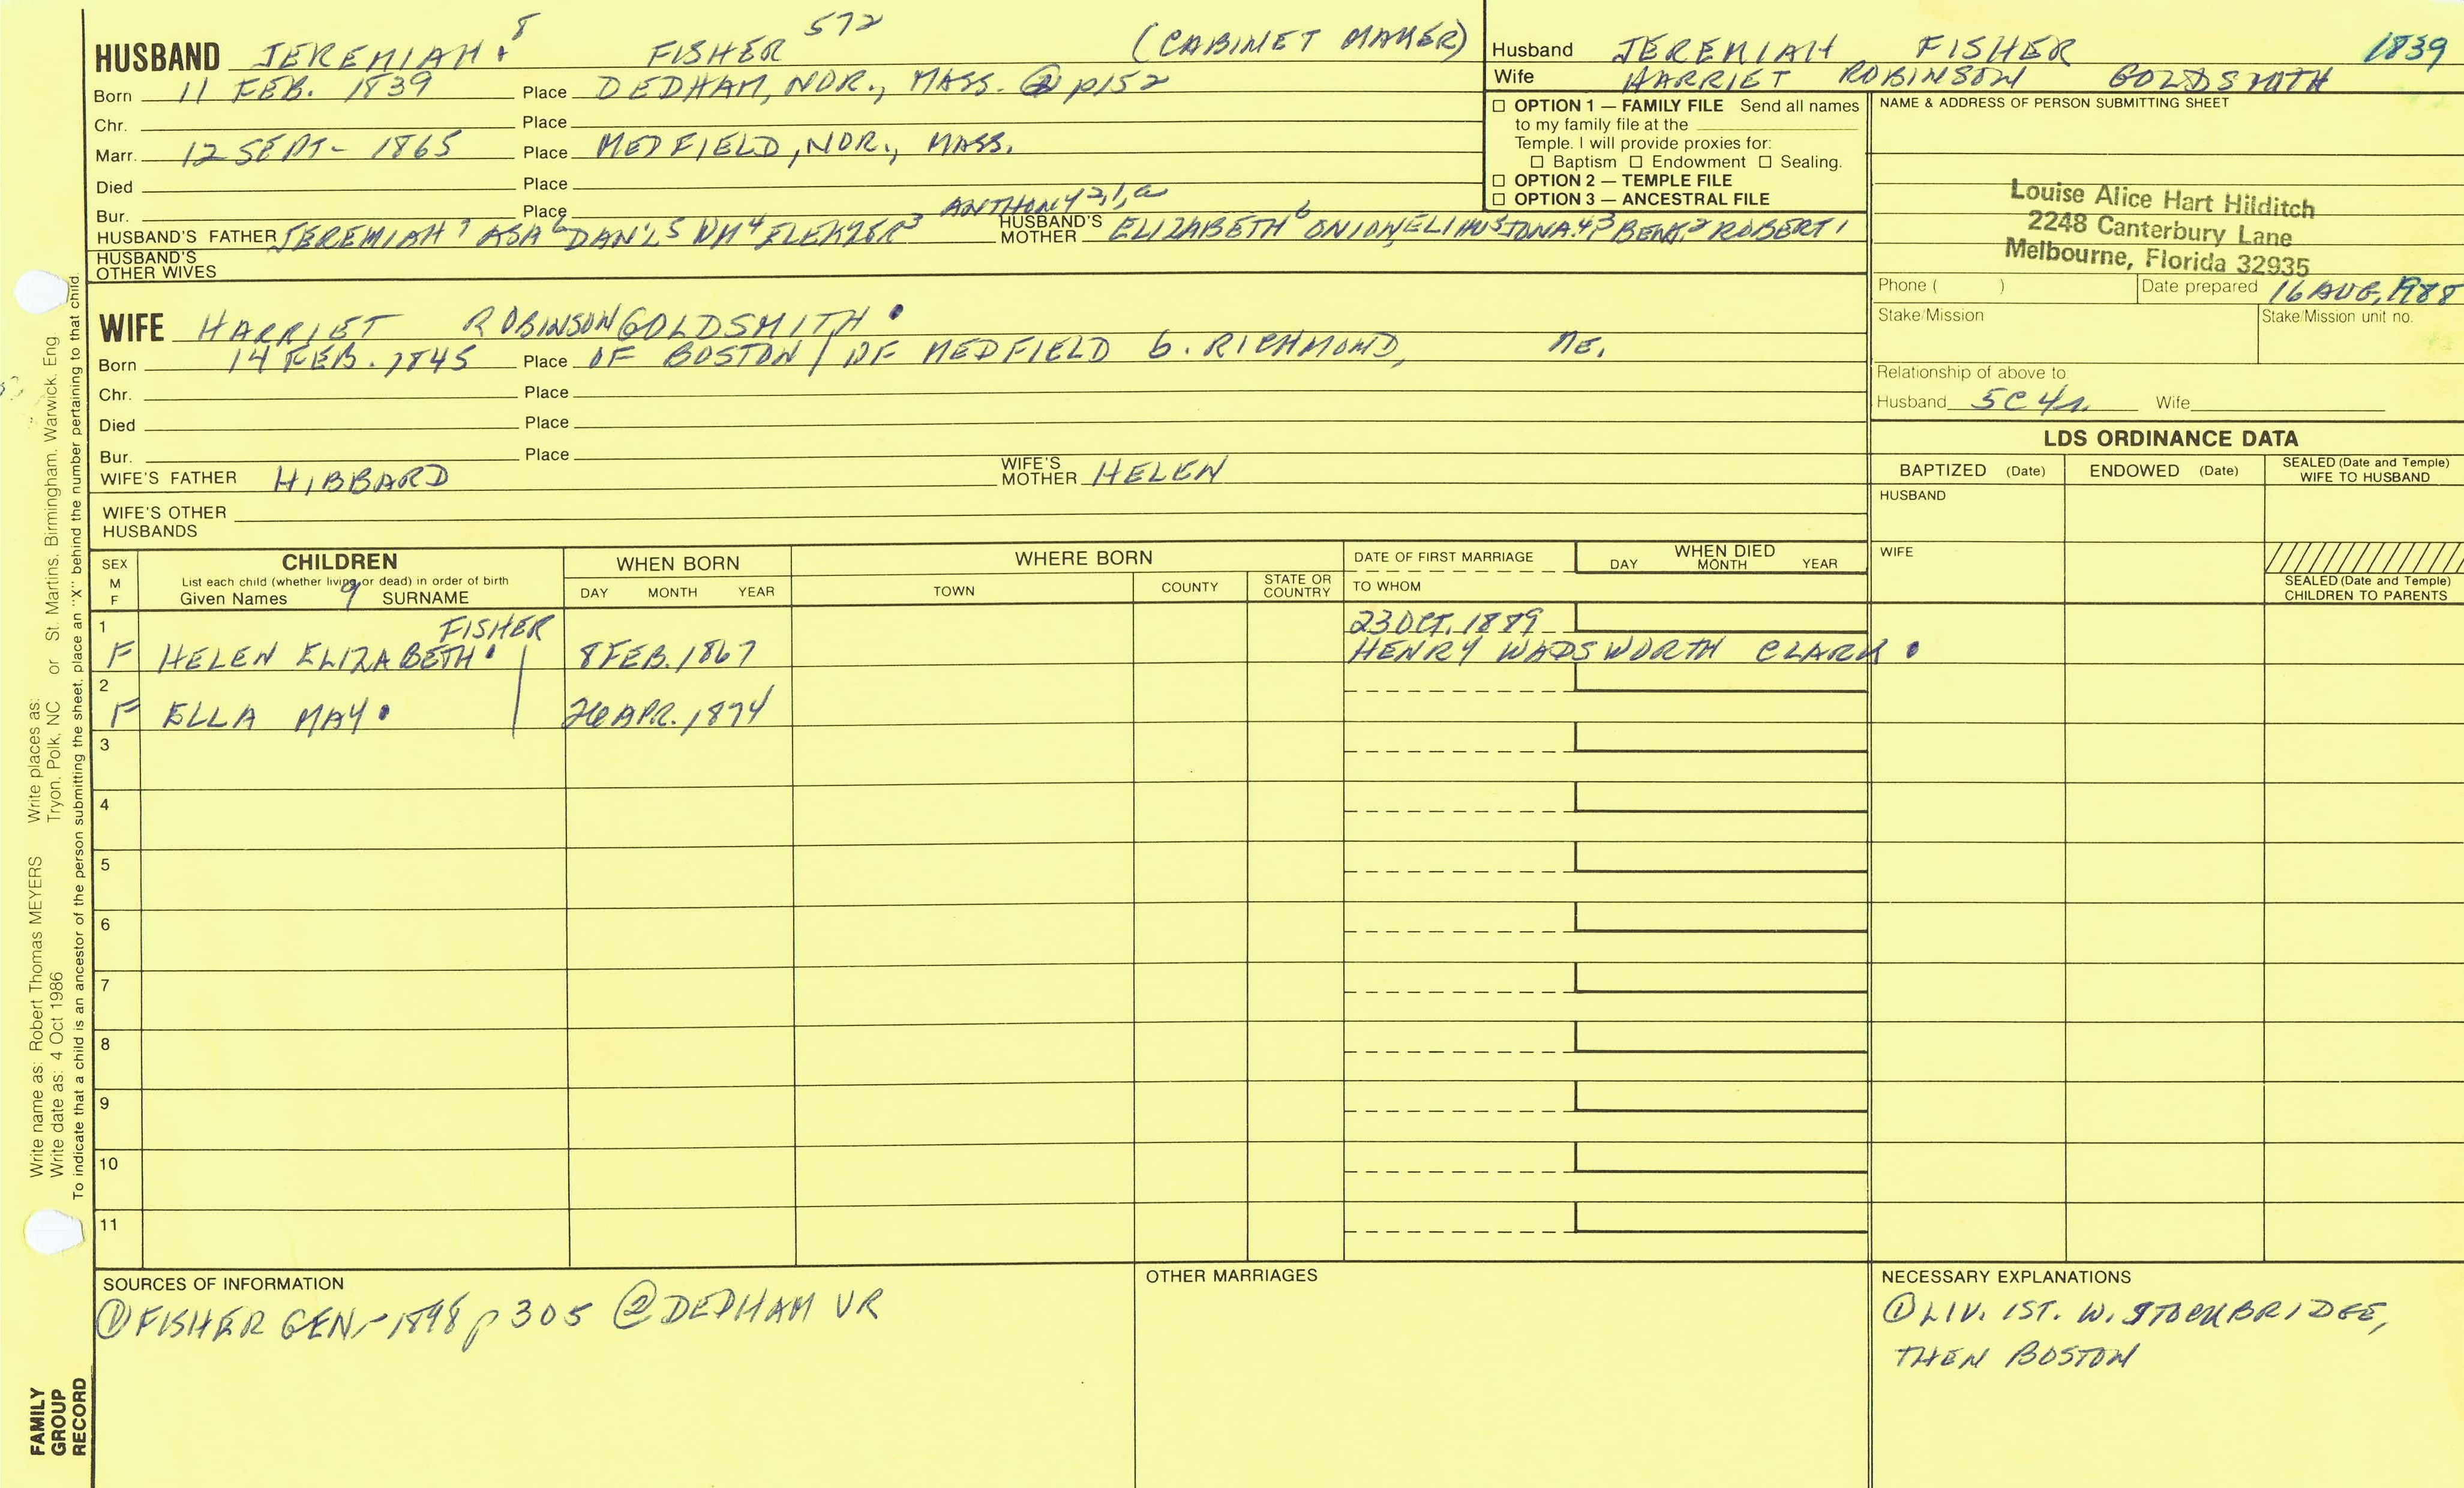 HUSBAND JEREMIAH 8 FISHER 572 (CABINET MAKER)
Born 11 FEB. 1839 Place DEDHAM, NOR., MASS. ② p152
Chr. Place
Marr. 12 SEPT- 1865 Place MEDFIELD, NOR., MASS.
Died Place
Bur. Place
ANTHONY 2,1,a
HUSBAND'S FATHER JEREMIAH 7 ASA 6 DAN'L 5 WM 4 ELEAZER 3 HUSBAND'S MOTHER ELIZABETH 6 ONION, ELIHU 5 JONA. 4,3 BENJ. 2 ROBERT 1
HUSBAND'S OTHER WIVES
WIFE HARRIET ROBINSON GOLDSMITH
Born 14 FEB. 1845 Place OF BOSTON / OF MEDFIELD b. RICHMOND, ME.
Chr. Place
Died Place
Bur. Place
WIFE'S FATHER HIBBARD WIFE'S MOTHER HELEN
WIFE'S OTHER HUSBANDS
Husband JEREMIAH FISHER 1839
Wife HARRIET ROBINSON GOLDSMITH
☐ OPTION 1 — FAMILY FILE Send all names
to my family file at the
Temple. I will provide proxies for:
☐ Baptism ☐ Endowment ☐ Sealing.
☐ OPTION 2 — TEMPLE FILE
☐ OPTION 3 — ANCESTRAL FILE
NAME & ADDRESS OF PERSON SUBMITTING SHEET
Louise Alice Hart Hilditch
2248 Canterbury Lane
Melbourne, Florida 32935
Phone ( ) Date prepared 16 AUG, 1988
Stake/Mission Stake/Mission unit no.
Relationship of above to:
Husband 5C4r. Wife
LDS ORDINANCE DATA
BAPTIZED (Date) ENDOWED (Date) SEALED (Date and Temple) WIFE TO HUSBAND
HUSBAND
WIFE
SEALED (Date and Temple) CHILDREN TO PARENTS
SEX M F
CHILDREN
List each child (whether living or dead) in order of birth
Given Names 9 SURNAME
WHEN BORN
DAY MONTH YEAR
WHERE BORN
TOWN COUNTY STATE OR COUNTRY
DATE OF FIRST MARRIAGE
TO WHOM
WHEN DIED
DAY MONTH YEAR
1 FISHER 23 OCT. 1889
F HELEN ELIZABETH 8 FEB. 1867 HENRY WADSWORTH CLARK
2
F ELLA MAY 26 APR. 1874
3
4
5
6
7
8
9
10
11
SOURCES OF INFORMATION
① FISHER GEN-1898 p 305 ② DEDHAM VR
OTHER MARRIAGES
NECESSARY EXPLANATIONS
① LIV. 1ST. W. STOCKBRIDGE,
THEN BOSTON
Write name as: Robert Thomas MEYERS Write places as: or St. Martins, Birmingham, Warwick, Eng.
Write date as: 4 Oct 1986 Tryon, Polk, NC
To indicate that a child is an ancestor of the person submitting the sheet, place an "X" behind the number pertaining to that child.
FAMILY
GROUP
RECORD